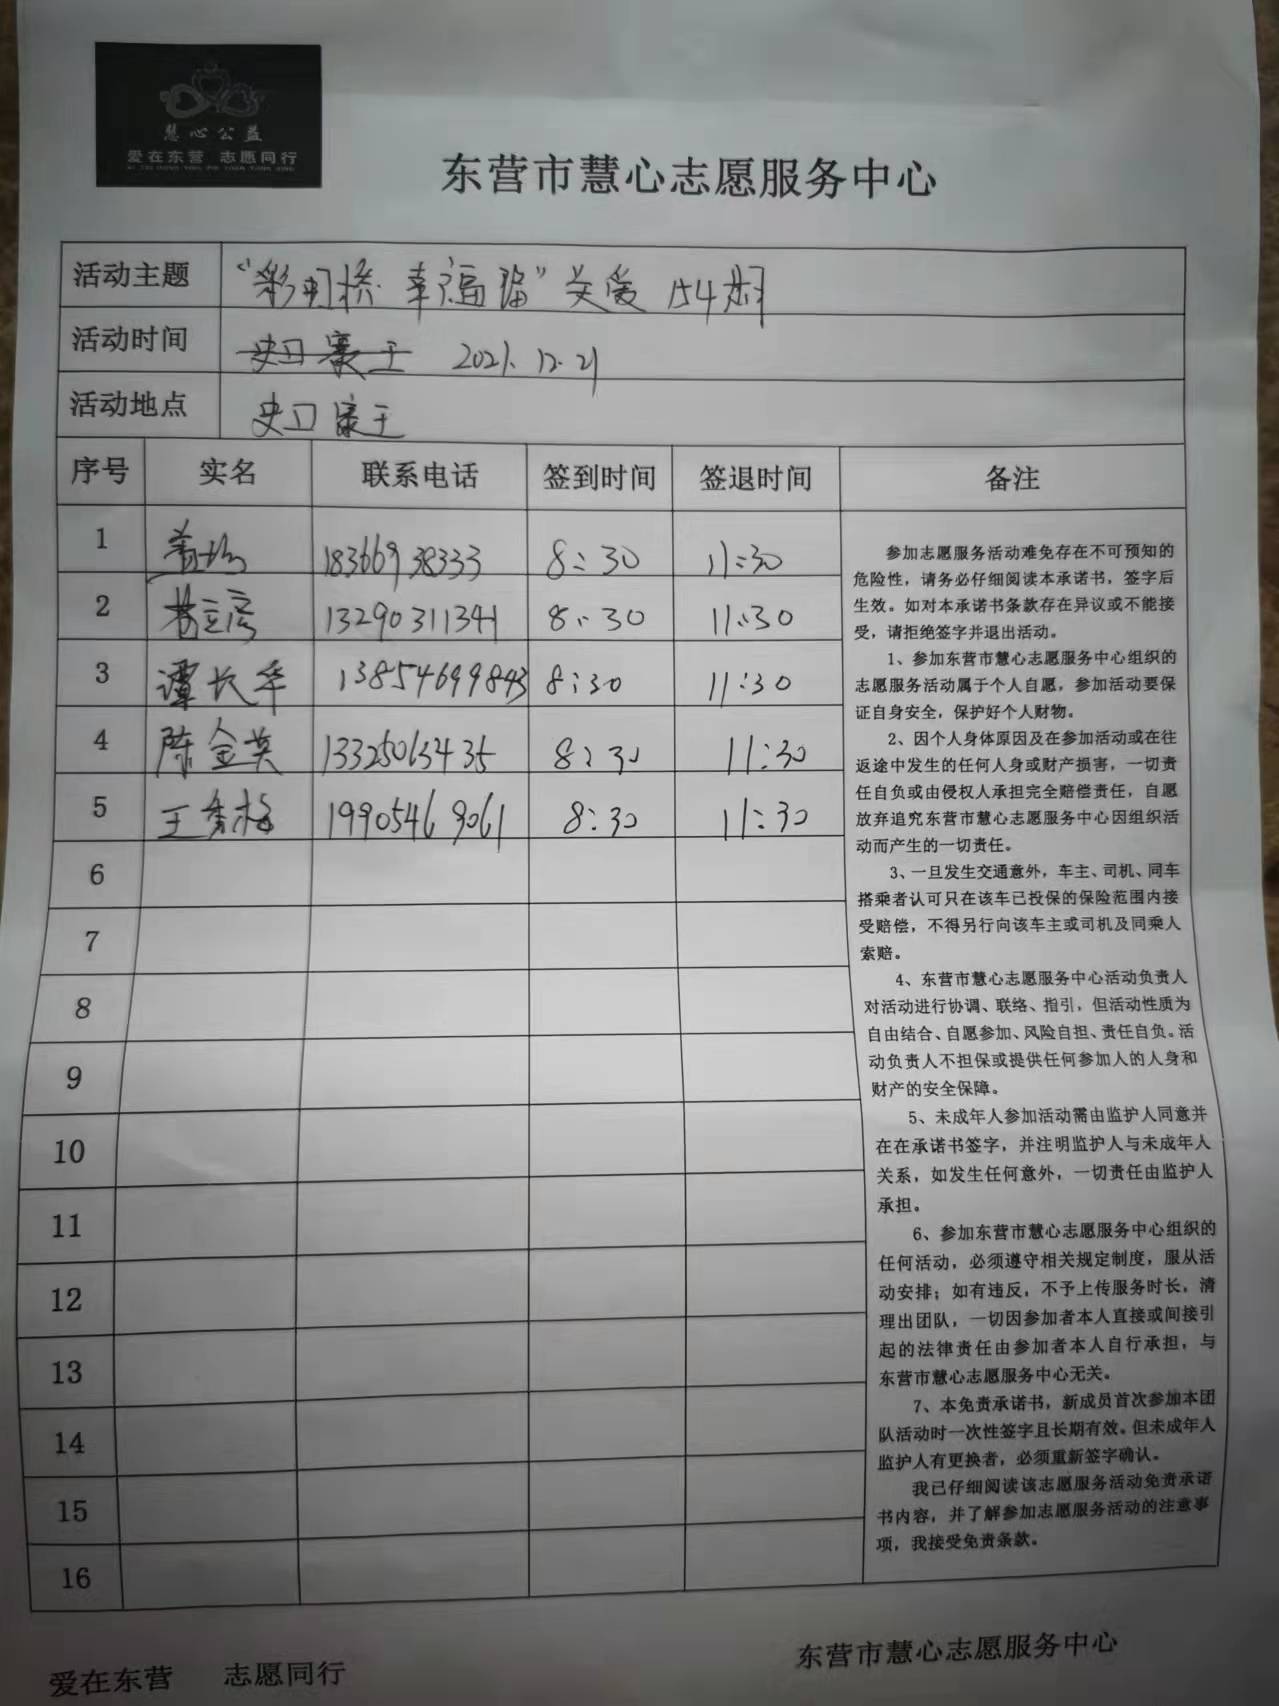 慧心公益
爱在东营 志愿同行
东营市慧心志愿服务中心
活动主题 “彩虹桥 幸福
关爱
活动时间 2021.12.21
活动地点 史口
序号 实名 联系电话 签到时间 签退时间 备注
1 18366938333 8:30 11:30
2 13290311341 8:30 11:30
3 谭长华 13854699843 8:30 11:30
4 陈金英 13325063435 8:30 11:30
5 王秀梅 19905469061 8:30 11:30
6
7
8
9
10
11
12
13
14
15
16
参加志愿服务活动难免存在不可预知的
危险性，请务必仔细阅读本承诺书，签字后
生效。如对本承诺书条款存在异议或不能接
受，请拒绝签字并退出活动。
1、参加东营市慧心志愿服务中心组织的
志愿服务活动属于个人自愿，参加活动要保
证自身安全，保护好个人财物。
2、因个人身体原因及在参加活动或在往
返途中发生的任何人身或财产损害，一切责
任自负或由侵权人承担完全赔偿责任，自愿
放弃追究东营市慧心志愿服务中心因组织活
动而产生的一切责任。
3、一旦发生交通意外，车主、司机、同车
搭乘者认可只在该车已投保的保险范围内接
受赔偿，不得另行向该车主或司机及同乘人
索赔。
4、东营市慧心志愿服务中心活动负责人
对活动进行协调、联络、指引，但活动性质为
自由结合、自愿参加、风险自担、责任自负。活
动负责人不担保或提供任何参加人的人身和
财产的安全保障。
5、未成年人参加活动需由监护人同意并
在在承诺书签字，并注明监护人与未成年人
关系，如发生任何意外，一切责任由监护人
承担。
6、参加东营市慧心志愿服务中心组织的
任何活动，必须遵守相关规定制度，服从活
动安排；如有违反，不予上传服务时长，清
理出团队，一切因参加者本人直接或间接引
起的法律责任由参加者本人自行承担，与
东营市慧心志愿服务中心无关。
7、本免责承诺书，新成员首次参加本团
队活动时一次性签字且长期有效。但未成年人
监护人有更换者，必须重新签字确认。
我已仔细阅读该志愿服务活动免责承诺
书内容，并了解参加志愿服务活动的注意事
项，我接受免责条款。
爱在东营 志愿同行
东营市慧心志愿服务中心